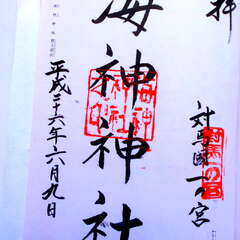 拝
対馬國一の宮
海神神社
平成二十六年六月九日